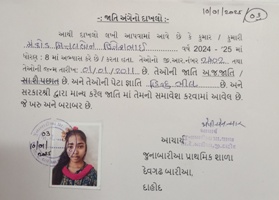 10/01/2025
03
:: જાતિ અંગેનો દાખલો ::
આથી દાખલો લખી આપવામાં આવે છે કે કુમાર / કુમારી
વર્ષ 2024 - '25 માં
ધોરણ : 8 માં અભ્યાસ કરે છે / કરતા હતા. તેઓનો જી.આર.નંબર 2802 તથા
તેઓની જન્મ તારીખ 01/01/2011 છે. તેઓની જાતિ અ.જ.જાતિ /
છે. તેઓની પેટા જ્ઞાતિ હિન્દુ ભીલ છે. અને
સરકારશ્રી દ્વારા માન્ય કરેલ જાતિ માં તેમનો સમાવેશ કરવામાં આવેલ છે.
જે ખરું અને બરાબર છે.
03
10/01/2025
આચાર્ય
જુનાબારીઆ પ્રાથમિક શાળા
દેવગઢ બારીઆ.
દાહોદ